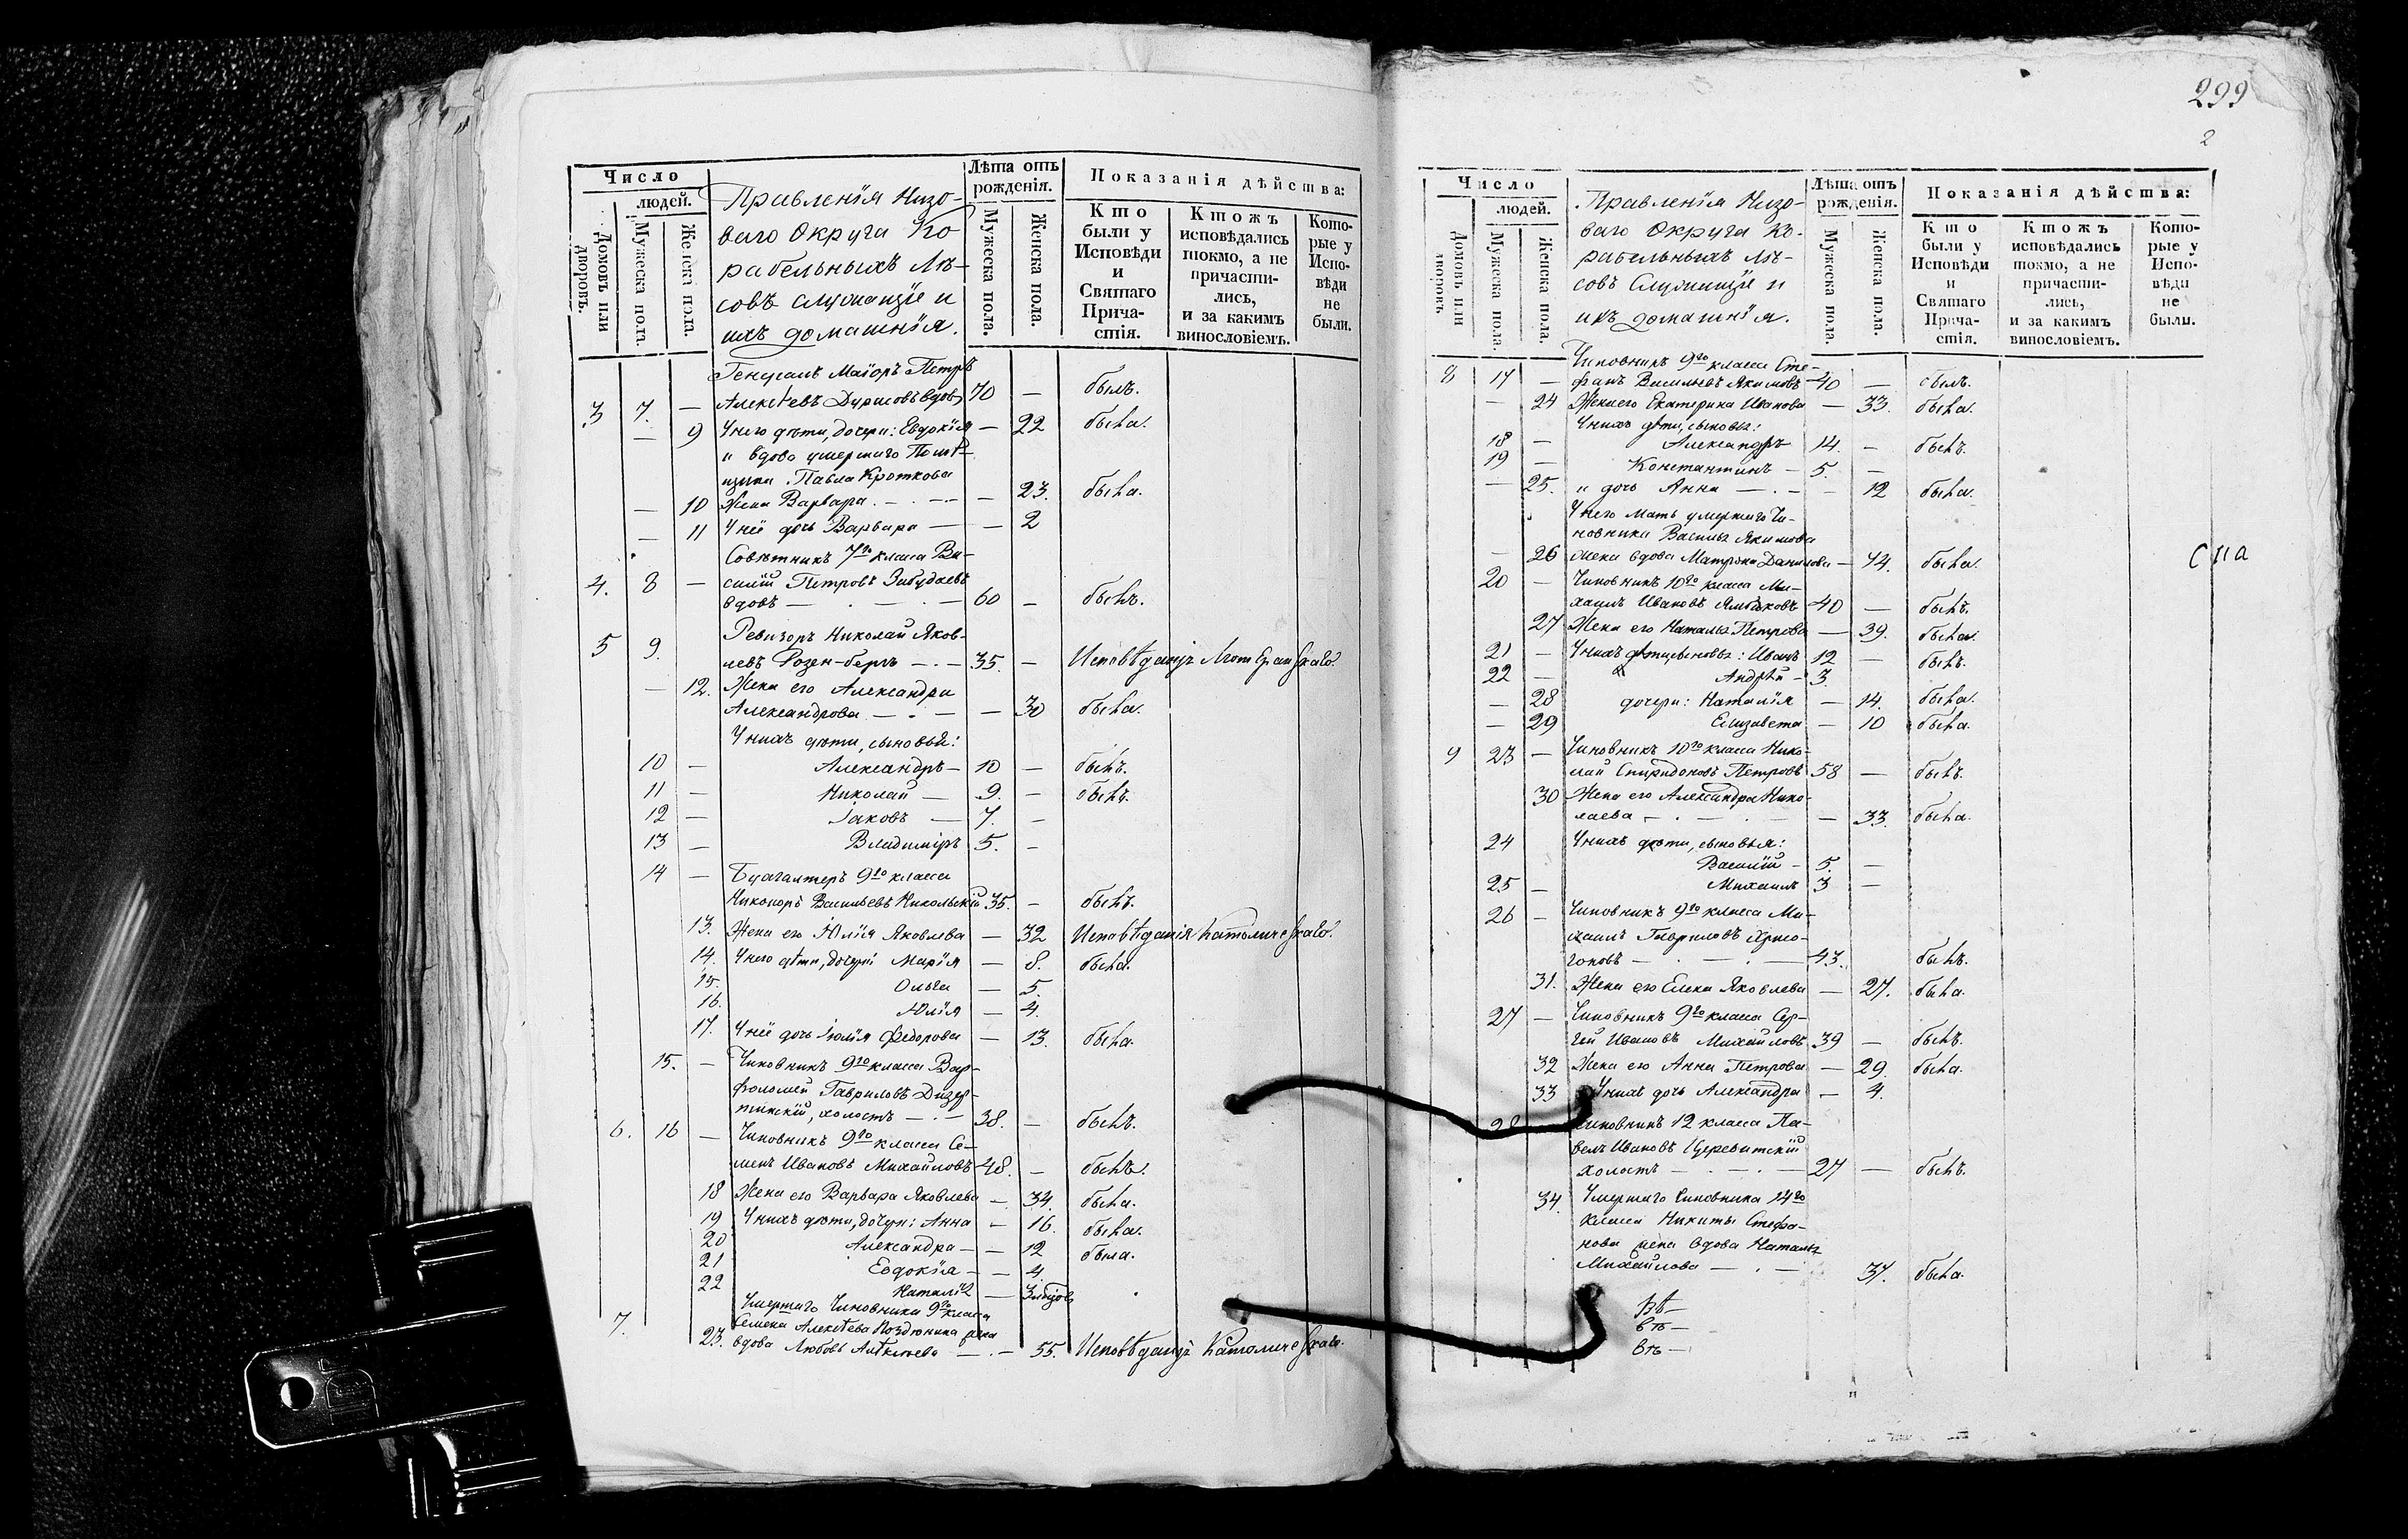 299
2
Число
людей.
Домовъ или дворовъ.
Мужеска пола.
Женска пола.
Правленія Низо-
ваго Округа Ко
рабельныхъ Лѣ-
совъ служащіе и
ихъ домашнія.
Лѣта отъ
рожденія.
Мужеска пола.
Женска пола.
Показанія дѣйства:
Кто
были у
Исповѣди
и
Святаго
Прича-
стія.
Ктожъ
исповѣдались
токмо, а не
причасти-
лись,
и за какимъ
винословіемъ.
Кото-
рые у
Испо-
вѣди
не
были.
Генералъ Маіоръ Петръ
3 7. — Алексѣевъ вдовъ 70 — былъ.
— 9 У него дѣти, дочери: Евдокія — 22 была.
и вдова умершаго Помѣ-
щика Павла Кроткова
— 10 жена Варвара — 23. была.
— 11 У неё дочь Варвара — — 2
Совѣтникъ 7го класса Ва-
4. 8 — силій Петровъ
вдовъ — 60 — былъ.
Ревизоръ Николай Яков-
5 9. левъ Розен-бергъ — 35. — Исповѣданія Лютеранскаго.
— 12. Жена его Александра
Александрова — — 30 была.
У нихъ дѣти, сыновья:
10 — Александръ — 10 — былъ.
11 — Николай — 9. — былъ.
12 — Іаковъ — 7. —
13 — Владиміръ 5. —
14 — Бухгалтеръ 9го класса
Никоноръ Васильевъ Никольскій 35. — былъ.
13. Жена его Юлія Яковлева — 32 Исповѣданія Католическаго.
14. У него дѣти, дочери Марія — 8. была.
15. Ольга — 5.
16. Юлія — 4.
17. У неё дочь Іюлія Федорова — 13. была.
15. — Чиновникъ 9го класса Вар-
фоломей Гавриловъ
холостъ — 38. — былъ.
6. 16 — Чиновникъ 9го класса Се-
менъ Ивановъ Михайловъ 48. — былъ.
18 Жена его Варвара Яковлева — 34. была.
19 У нихъ дѣти, дочери: Анна — 16. была.
20 Александра — — 12 была.
21 Евдокія — — 4.
22 Наталія —
Умершаго Чиновника 9го класса
7. Семена Алексѣева жена
23. вдова Любовь — 55. Исповѣданія Католическаго.
Число
людей.
Домовъ или дворовъ.
Мужеска пола.
Женска пола.
Правленія Низо-
ваго Округа Ко-
рабельныхъ Лѣ-
совъ Служащіе и
ихъ домашнія.
Лѣта отъ
рожденія.
Мужеска пола.
Женска пола.
Показанія дѣйства:
Кто
были у
Исповѣди
и
Святаго
Прича-
стія.
Ктожъ
исповѣдались
токмо, а не
причасти-
лись,
и за какимъ
винословіемъ.
Кото-
рые у
Испо-
вѣди
не
были.
Чиновникъ 9го класса Сте-
8 17 — фанъ Васильевъ Якимовъ 40 — былъ.
— 24 Жена его Екатерина Иванова — 33. была.
У нихъ дѣти, сыновья:
18 — Александръ 14. — былъ.
19 — Константинъ — 5. —
— 25. и дочь Анна — — 12 была.
У него мать умершаго Чи-
новника Василья Якимова
— 26 жена вдова Матрона Данилова — 74. была.
20 — Чиновникъ 10го класса Ми-
хаилъ Ивановъ 40 — былъ.
27 Жена его Наталья Петрова — 39. была.
21 — У нихъ дѣти, сыновья: Иванъ 12 — былъ.
22 — Андрей — 3.
— 28 дочери: Наталія — 14. была.
— 29 Елизавета — 10 была.
9 23 — Чиновникъ 10го класса Нико-
лай Спиридоновъ Петровъ 58 — былъ.
30 Жена его Александра Нико-
лаева — — 33. была.
24 У нихъ дѣти, сыновья:
Василій — 5. —
25 — Михаилъ 3 —
26 — Чиновникъ 9го класса Ми-
хаилъ Гавриловъ
43. былъ.
31. Жена его Елена Яковлева — 27. была.
27 — Чиновникъ 9го класса Сер-
гѣй Ивановъ Михайловъ 39 — былъ.
32 Жена его Анна Петрова — 29. была.
33 У нихъ дочь Александра — 4.
28 Чиновникъ 12 класса Па-
велъ Ивановъ Церевитскій
холостъ — 27 — былъ.
34. Умершаго Чиновника 14го
класса Никиты Стефа-
нова жена вдова Наталья
Михайлова — 37. была.